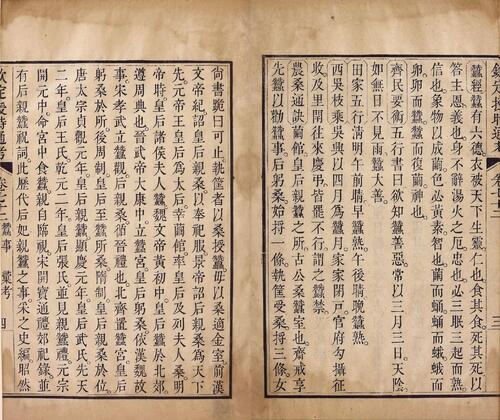 欽定授時通考 卷七十二 三
蠶經蠶有六德衣被天下生靈仁也食其食死其死以
答主恩義也身不辭湯火之厄忠也必三眠三起而熟
信也象物以成繭色必黃素智也繭而蛹蛹而蛾蛾而
卵卵而蠶蠶而復繭神也
齊民要術五行書曰欲知蠶善惡常以三月三日天陰
如無日不見雨蠶大善
田家五行清明午前晴早蠶熟午後晴晚蠶熟
西吳枝乘吳興以四月爲蠶月家家閉戸官府勾攝征
收及里閈往來慶弔皆罷不行謂之蠶禁
農桑通訣繭館皇后親蠶之所古公桑蠶室也齋戒享
先蠶以勸蠶事后躬桑始捋一條執筐受桑捋三條女
尚書跪曰可止執筐者以桑授蠶母以桑適金室前漢
文帝紀詔皇后親桑以奉祀服景帝詔后親桑爲天下
先元帝王皇后爲太后幸繭館率皇后及列夫人桑明
帝時皇后諸侯夫人蠶魏文帝黃初中皇后蠶於北郊
遵周典也晉武帝太康中立蠶宮皇后躬桑依漢魏故
事宋孝武立蠶觀后親桑循晉禮也北齊置蠶宮皇后
躬桑於所後周制皇后至蠶所桑隋制皇后親桑於位
唐太宗貞觀元年皇后親蠶顯慶元年皇后武氏先天
二年皇后王氏乾元二年皇后張氏並見親蠶禮元宗
開元中命宮中食蠶親自臨視宋開寶通禮郊祀錄並
有后親蠶祝詞此歷代后妃親蠶之事采之史編昭然
欽定授時通考 卷七十二 蠶事 彙考 四